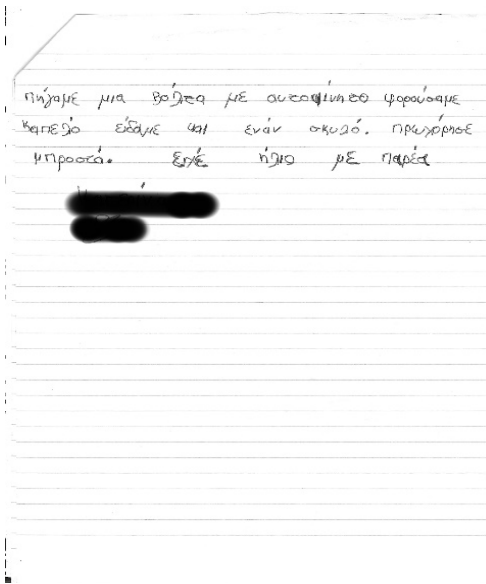 πήγαμε μια βόλτα με αυτοφίνητο φορούσαμε
καπέλο είδαμε και ενάν σκυλό. πρωχόρησε
μπροστά. Είχε ήλιο με παρέα